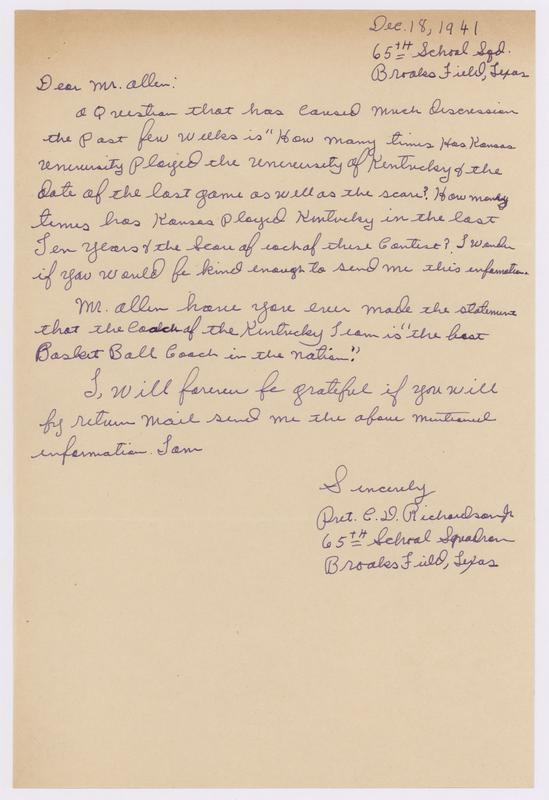 Dec. 18, 1941
65th School Sqd.
Brooks Field, Texas
Dear Mr. Allen:
A Question that has caused much discression
the past few weeks is "How many times Has Kansas
Univeristy Played the Univeristy of Kentucky & the
date of the last game as well as the score? How many
times has Kansas Played Kentucky in the last
Ten years & the score of each of these Contest? I wonder
if you would be kind enough to send me this information.
Mr. Allen have you ever made the statement
that the Coach of the Kentucky Team is "the best
Basket Ball Coach in the nation"?
I, will forever be grateful if you will
by return mail send me the above mentioned
information. I am
Sincerely
Pvt. C. D. Richardson Jr
65th School Squadron
Brooks Field, Texas